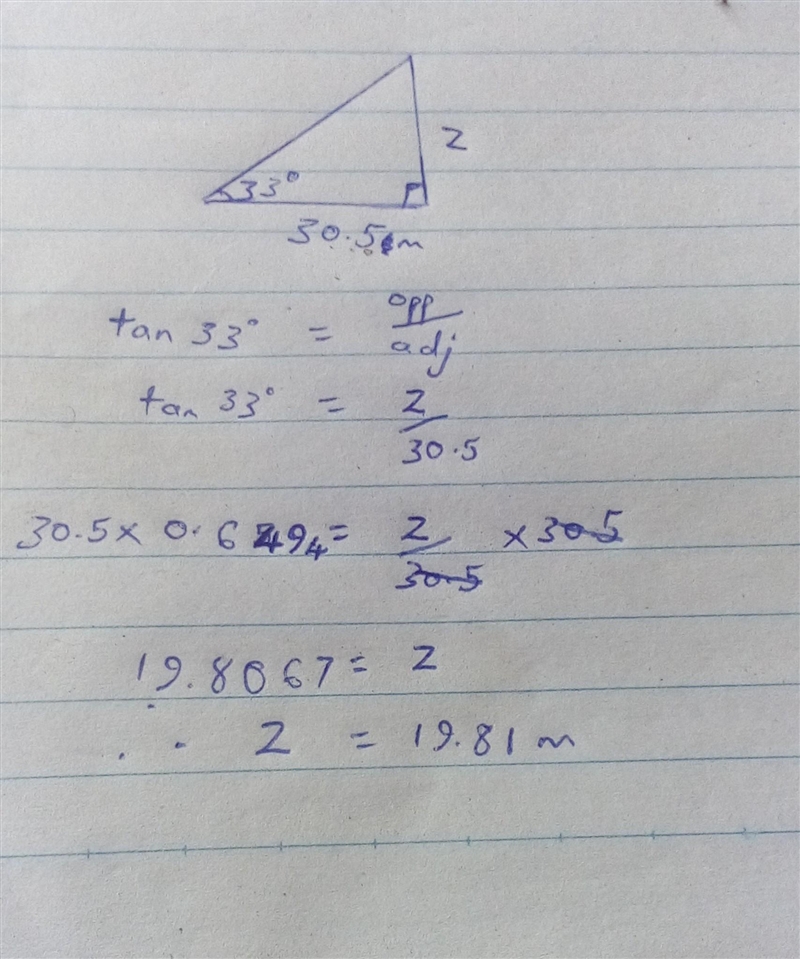 z
33°
30.5 m
tan 33° = opp/adj
tan 33° = z/30.5
30.5 × 0.6494 = z/30.5 × 30.5
19.8067 = z
∴ z = 19.81 m